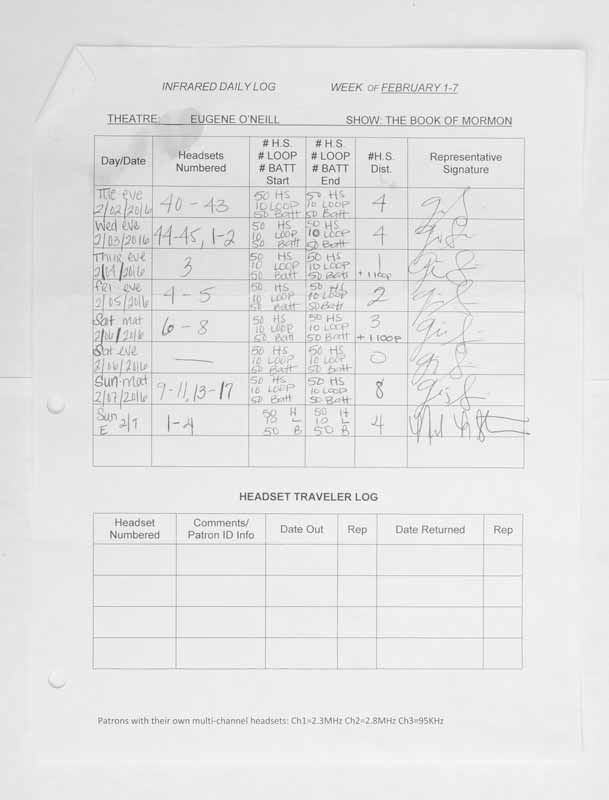 INFRARED DAILY LOG WEEK OF FEBRUARY 1-7
THEATRE: EUGENE O'NEILL SHOW: THE BOOK OF MORMON
Day/Date
Headsets
Numbered
# H.S.
# LOOP
# BATT
Start
# H.S.
# LOOP
# BATT
End
#H.S.
Dist.
Representative
Signature
Tue eve
2/02/2016
40 - 43
50 HS
10 LOOP
50 Batt
50 HS
10 LOOP
50 Batt
4
Wed eve
2/03/2016
44-45, 1-2
50 HS
10 LOOP
50 Batt
50 HS
10 LOOP
50 Batt
4
Thur eve
2/04/2016
3
50 HS
10 LOOP
50 Batt
50 HS
10 LOOP
50 Batt
1
+ 1 loop
Fri eve
2/05/2016
4 - 5
50 HS
10 LOOP
50 Batt
50 HS
10 LOOP
50 Batt
2
Sat mat
2/06/2016
6 - 8
50 HS
10 LOOP
50 Batt
50 HS
10 LOOP
50 Batt
3
+ 1 loop
Sat eve
2/06/2016
—
50 HS
10 LOOP
50 Batt
50 HS
10 LOOP
50 Batt
0
Sun mat
2/07/2016
9-11, 13-17
50 HS
10 LOOP
50 Batt
50 HS
10 LOOP
50 Batt
8
Sun
E 2/7
1-4
50 H
10 L
50 B
50 H
10 L
50 B
4
HEADSET TRAVELER LOG
Headset
Numbered
Comments/
Patron ID Info
Date Out
Rep
Date Returned
Rep
Patrons with their own multi-channel headsets: Ch1=2.3MHz Ch2=2.8MHz Ch3=95KHz